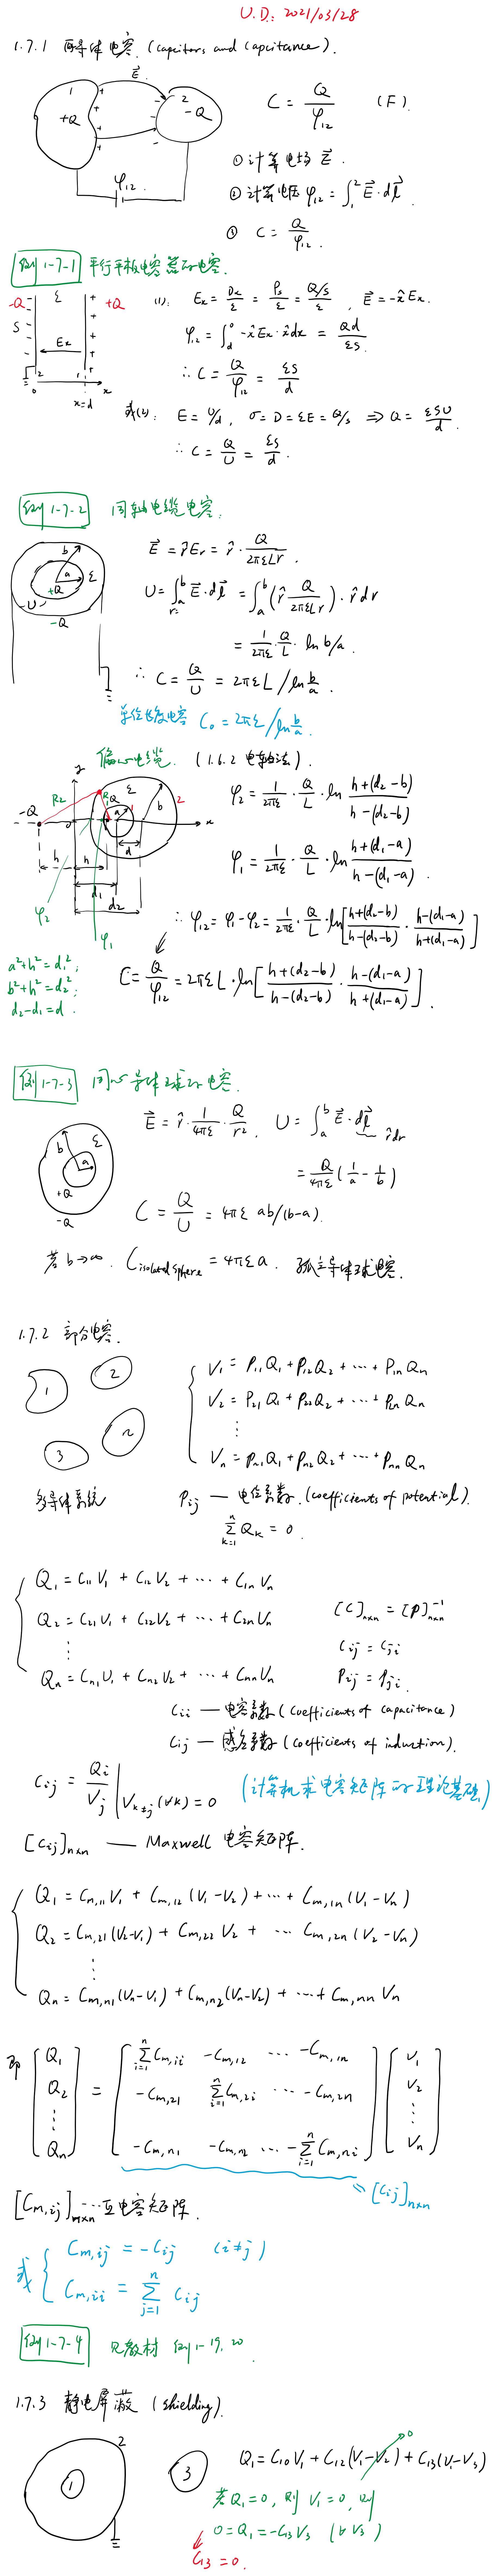 U.D.: 2021/03/28
1.7.1 两导体电容. (capacitors and capacitance).
E⃗
1 + + + + +
+Q
- - - 2
-Q
φ12
C = Q/φ12 (F)
① 计算电场 E⃗.
② 计算电压 φ12 = ∫₁² E⃗·dl⃗
③ C = Q/φ12.
例1-7-1 平行平板电容器的电容.
-Q ε +Q
S
Ex
2 1 x
0 x=d
(1): Ex = Dx/ε = ρs/ε = (Q/S)/ε, E⃗ = -x̂Ex.
φ12 = ∫_d^0 -x̂Ex·x̂dx = Qd/εS.
∴ C = Q/φ12 = εS/d
或(2): E = U/d, σ = D = εE = Q/S ⇒ Q = εSU/d.
∴ C = Q/U = εS/d.
例1-7-2 同轴电缆电容.
b a ε
+Q
-U+
-Q
E⃗ = r̂Er = r̂·Q/2πεLr.
U = ∫_{r=a}^b E⃗·dl⃗ = ∫_a^b (r̂ Q/2πεLr)·r̂dr
= 1/2πε · Q/L · ln b/a.
∴ C = Q/U = 2πεL/ln b/a.
单位长度电容 C₀ = 2πε/ln b/a.
偏心电缆. (1.6.2 电轴法).
y
-Q R2 R1 Q ε b 2
a x
h h d
d1
d2
φ2 φ1
φ2 = 1/2πε · Q/L · ln (h+(d2-b))/(h-(d2-b))
φ1 = 1/2πε · Q/L · ln (h+(d1-a))/(h-(d1-a)).
∴ φ12 = φ1-φ2 = 1/2πε · Q/L · ln[(h+(d2-b))/(h-(d2-b)) · (h-(d1-a))/(h+(d1-a))]
a²+h² = d1²;
b²+h² = d2²;
d2-d1 = d.
C = Q/φ12 = 2πεL·ln[(h+(d2-b))/(h-(d2-b)) · (h-(d1-a))/(h+(d1-a))].
例1-7-3 同心导体球的电容.
b ε a
+Q
-Q
E⃗ = r̂·1/4πε·Q/r². U = ∫_a^b E⃗·dl⃗
r̂dr
= Q/4πε (1/a - 1/b)
C = Q/U = 4πε ab/(b-a).
若 b→∞. C_isolated sphere = 4πεa. 孤立导体球电容.
1.7.2 部分电容.
1 2 3 n
多导体系统
V1 = P11Q1 + P12Q2 + ··· + P1nQn
V2 = P21Q1 + P22Q2 + ··· + P2nQn
⋮
Vn = Pn1Q1 + Pn2Q2 + ··· + PnnQn
Pij — 电位系数. (coefficients of potential).
Σ_{k=1}^n Qk = 0.
Q1 = C11V1 + C12V2 + ··· + C1nVn
Q2 = C21V1 + C22V2 + ··· + C2nVn
⋮
Qn = Cn1V1 + Cn2V2 + ··· + CnnVn
[C]n×n = [P]⁻¹n×n
Cij = Cji
Pij = Pji.
Cii — 电容系数 (coefficients of capacitance)
Cij — 感应系数 (coefficients of induction).
Cij = Qi/Vj |V_{k≠j}(∀k)=0 (计算机求电容矩阵的理论基础)
[Cij]n×n — Maxwell 电容矩阵.
Q1 = Cm,11V1 + Cm,12(V1-V2) + ··· + Cm,1n(V1-Vn)
Q2 = Cm,21(V2-V1) + Cm,22V2 + ··· Cm,2n(V2-Vn)
⋮
Qn = Cm,n1(Vn-V1) + Cm,n2(Vn-V2) + ··· + Cm,nnVn
即 [Q1 Q2 ⋮ Qn] =
[Σ_{i=1}^n Cm,1i -Cm,12 ··· -Cm,1n
-Cm,21 Σ_{i=1}^n Cm,2i ··· -Cm,2n
-Cm,n1 -Cm,n2 ··· -Σ_{i=1}^n Cm,ni] [V1 V2 ⋮ Vn]
[Cij]n×n
[Cm,ij]n×n ··· 互电容矩阵.
或 { Cm,ij = -Cij (i≠j)
Cm,ii = Σ_{j=1}^n Cij
例1-7-4 见教材 例1-19, 20.
1.7.3 静电屏蔽 (shielding).
1 2 3
Q1 = C10V1 + C12(V1-V2) + C13(V1-V3)
0
若Q1=0, 则 V1=0, 则
0 = Q1 = -C13V3 (∀V3)
C13 = 0.